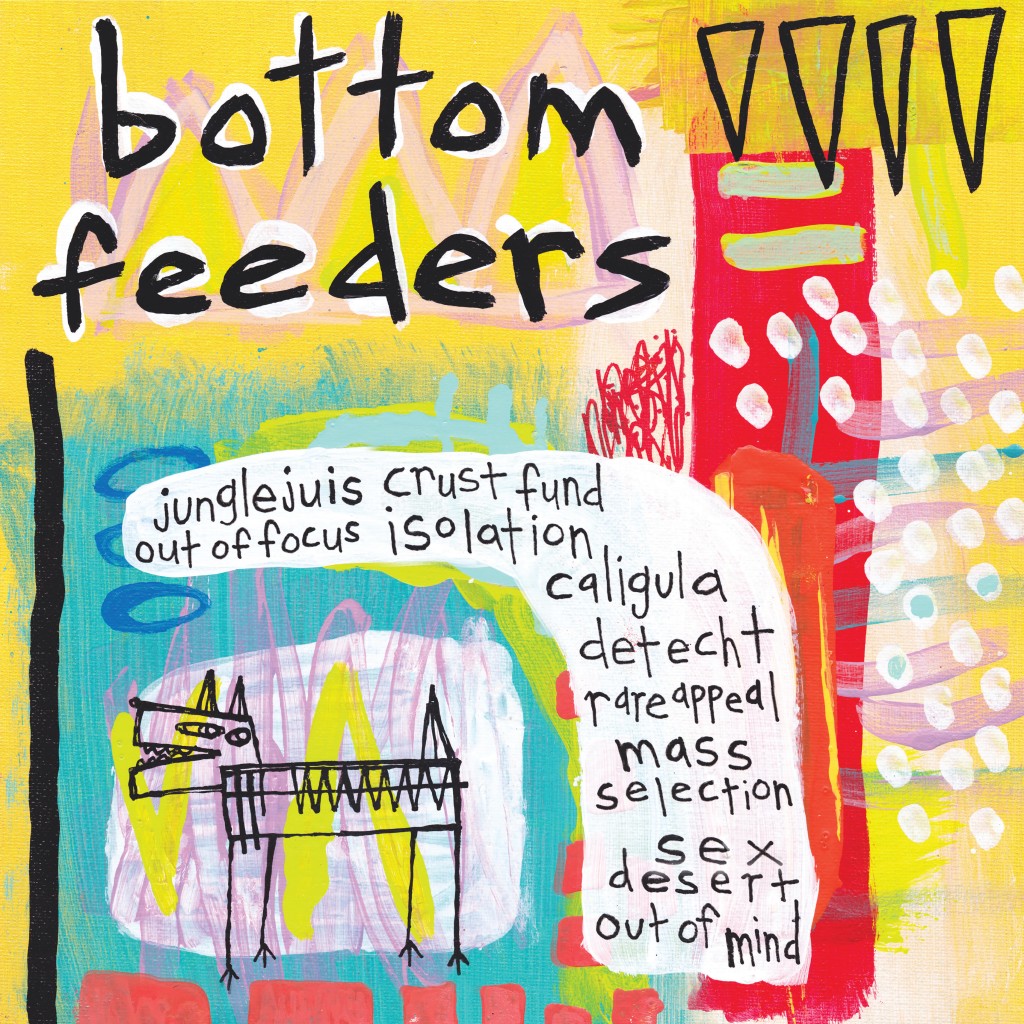 bottom
feeders
junglejuis crust fund
out of focus isolation
caligula
detecht
rare appeal
mass
selection
sex
desert
out of mind